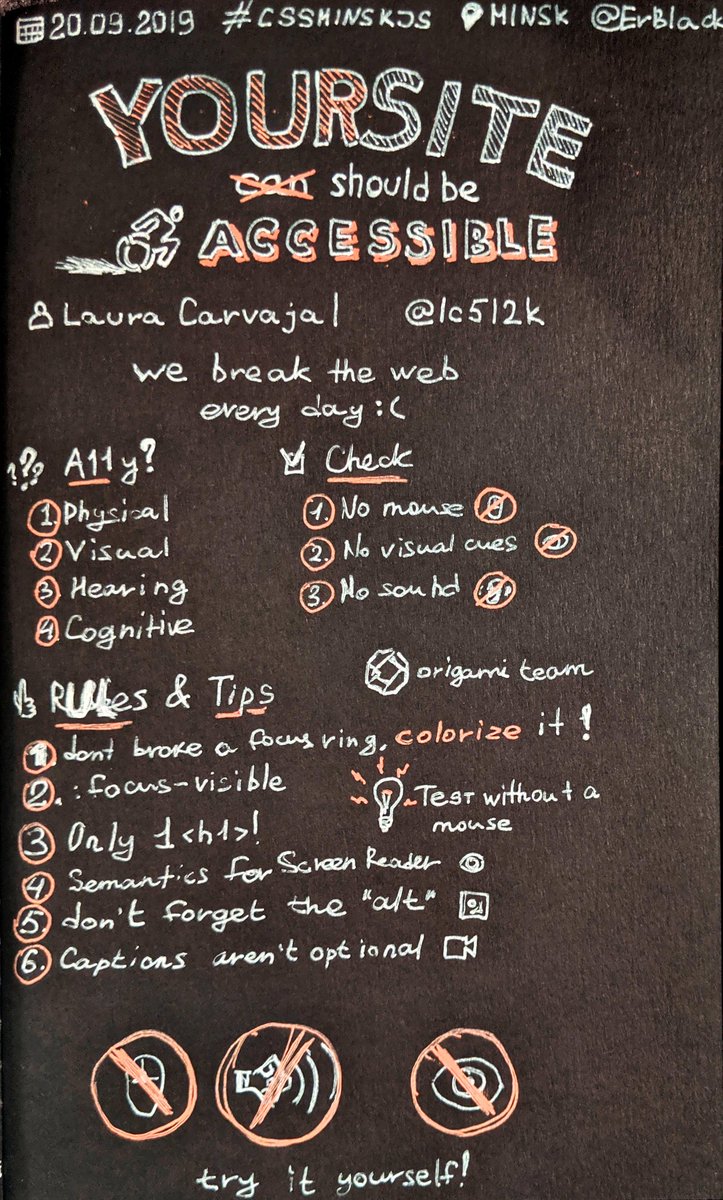 20.09.2019 #CSSMINSKJS MINSK @ErBlack
YOUR SITE
can should be
ACCESSIBLE
Laura Carvajal @lc512k
we break the web
every day :(
??? A11y?
1. Physical
2 Visual
3 Hearing
4 Cognitive
Check
1. No mouse
2. No visual cues
3. No sound
origami team
Rules & Tips
1 dont broke a focus ring, colorize it!
2. :focus-visible
Test without a
mouse
3 Only 1 <h1>!
4 Semantics for Screen Reader
5. don't forget the "alt"
6. Captions aren't optional
try it yourself!